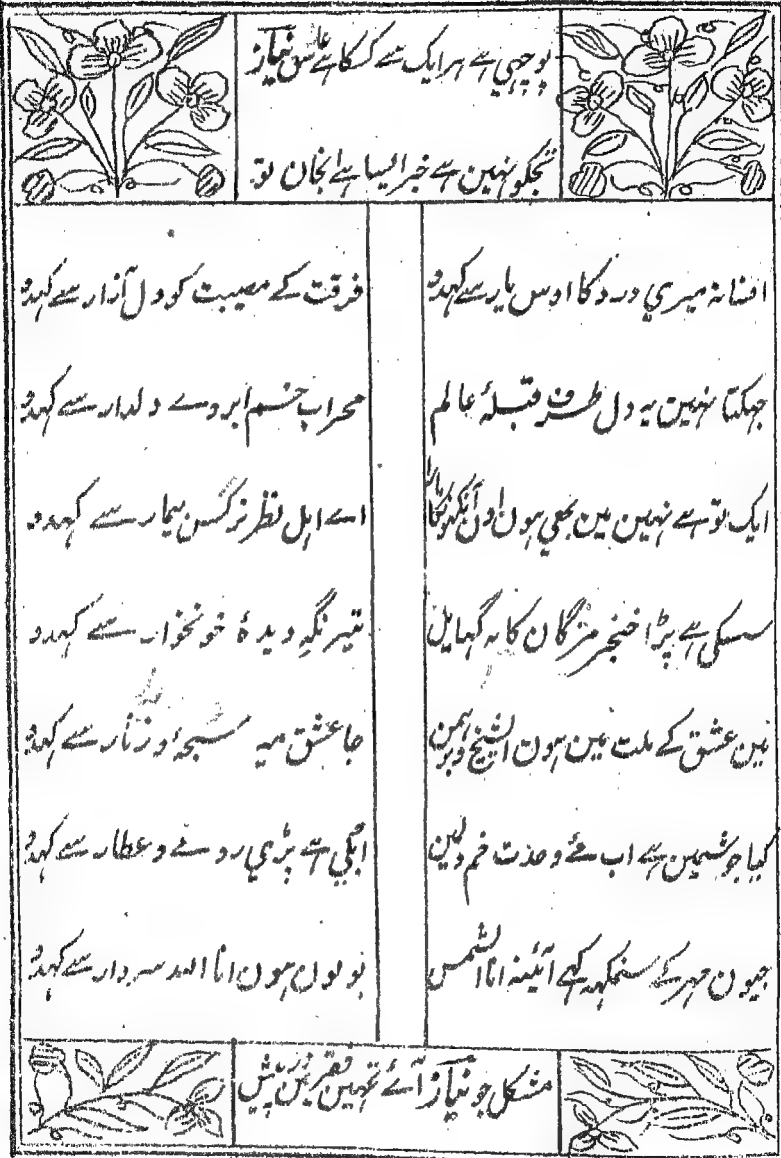 پوچھي ہے ہر ایک سے کسکا ہے عاشق نیاز
تجکو نہین ہے خبر ایسا ہے انجان تو
افسانہ میري درد کا اوس یار سے کہدو
فرقت کے مصیبت کو دل آزار سے کہدو
جہکتا نہین یہ دل طرف قبلۂ عالم
محراب خم ابروے دلدار سے کہدو
ایک تو ہے نہین مین بھي ہون اون آنکہونکا مارا
اے اہل نظر نرگس بیمار سے کہدو
سسکي ہے پڑا خنجر مژگان کا یہ گہایل
تیر نگہ دیدۂ خونخوار سے کہدو
مین عشق کے ملت مین ہون ا شیخ و برہمن
جا عشق میہ سبحۂ و زنار سے کہدو
کیا جوشمین ہے اب مئے وحدت خم دلمین
ابکي ہے پڑي روئے و عطار سے کہدو
جیون مہر کے سنمکہہ کہے آئینہ انا الشمس
بولون ہون انا اللہ سردار سے کہدو
مشکل جو نیاز آئے تمہین فقر مین در پیش